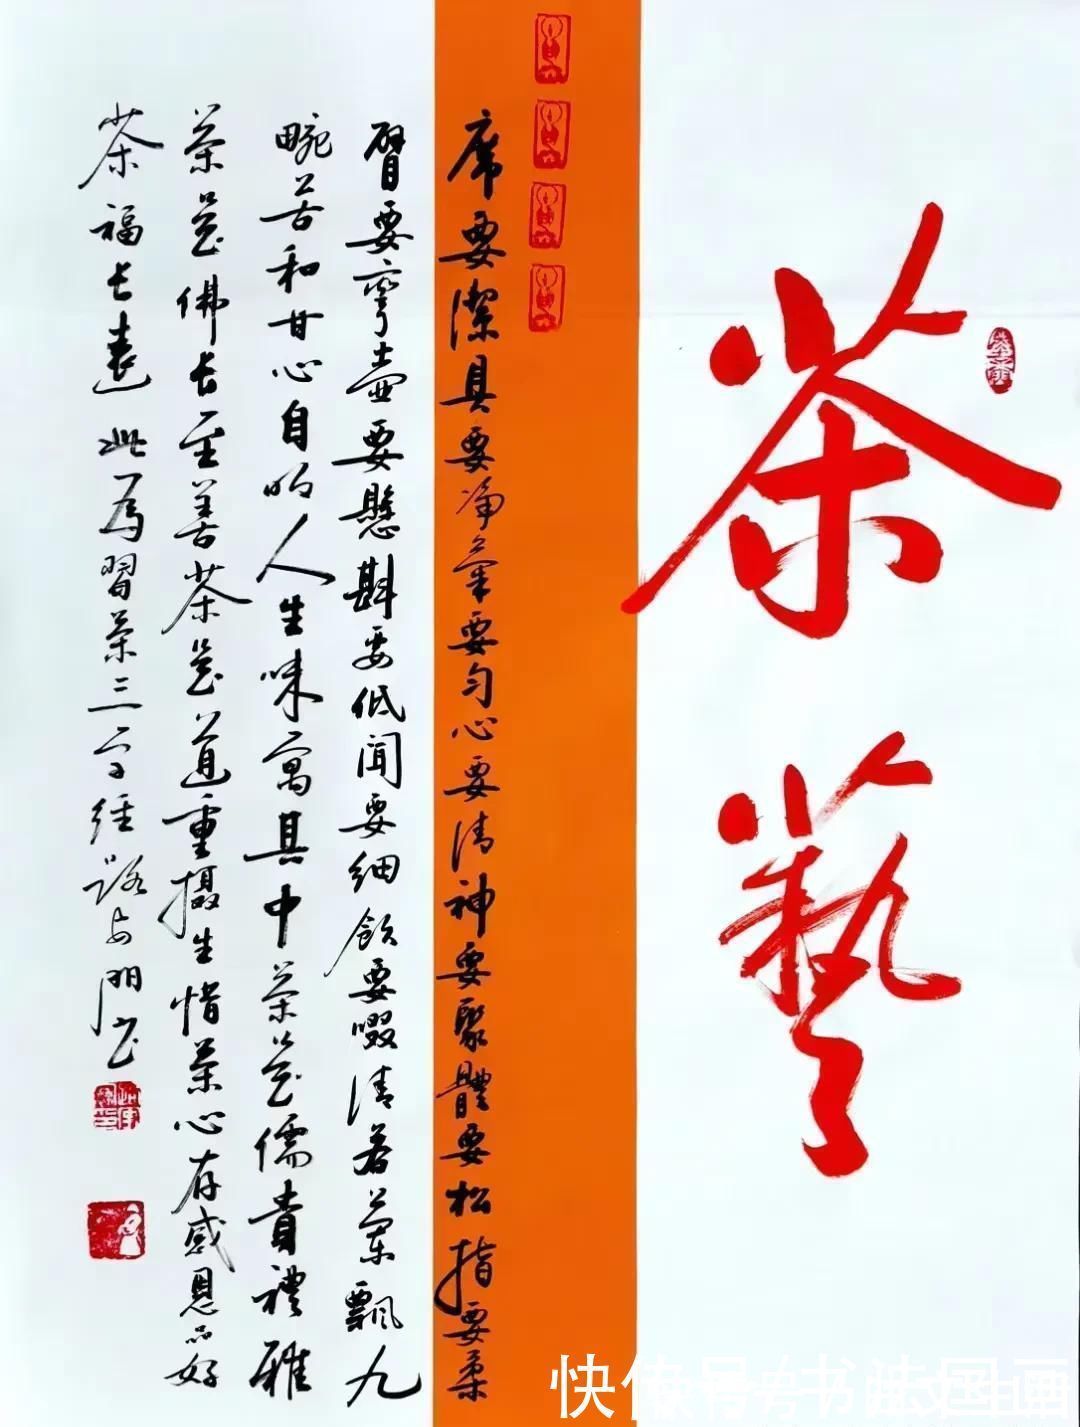 茶藝
席要潔具要净氣要匀心要清神要聚體要松指要柔
臂要彎壺要懸斟要低聞要細飲要啜清若蘭飄九
畹苦和甘心自明人生味寓其中茶筵儒貴禮雅
茶筵佛長至善茶筵道重摄生惜茶心存感恩品好
茶福长遠 此為習茶三字經 路安門书
快传号
书法国画